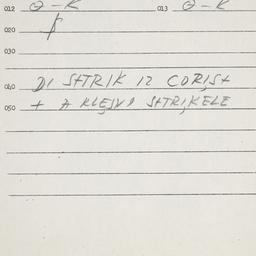 012 θ - K 013 θ - K
020
030
040 DI SHTRIK IZ CORIST
050 + A KLESVD SHTRIKELE